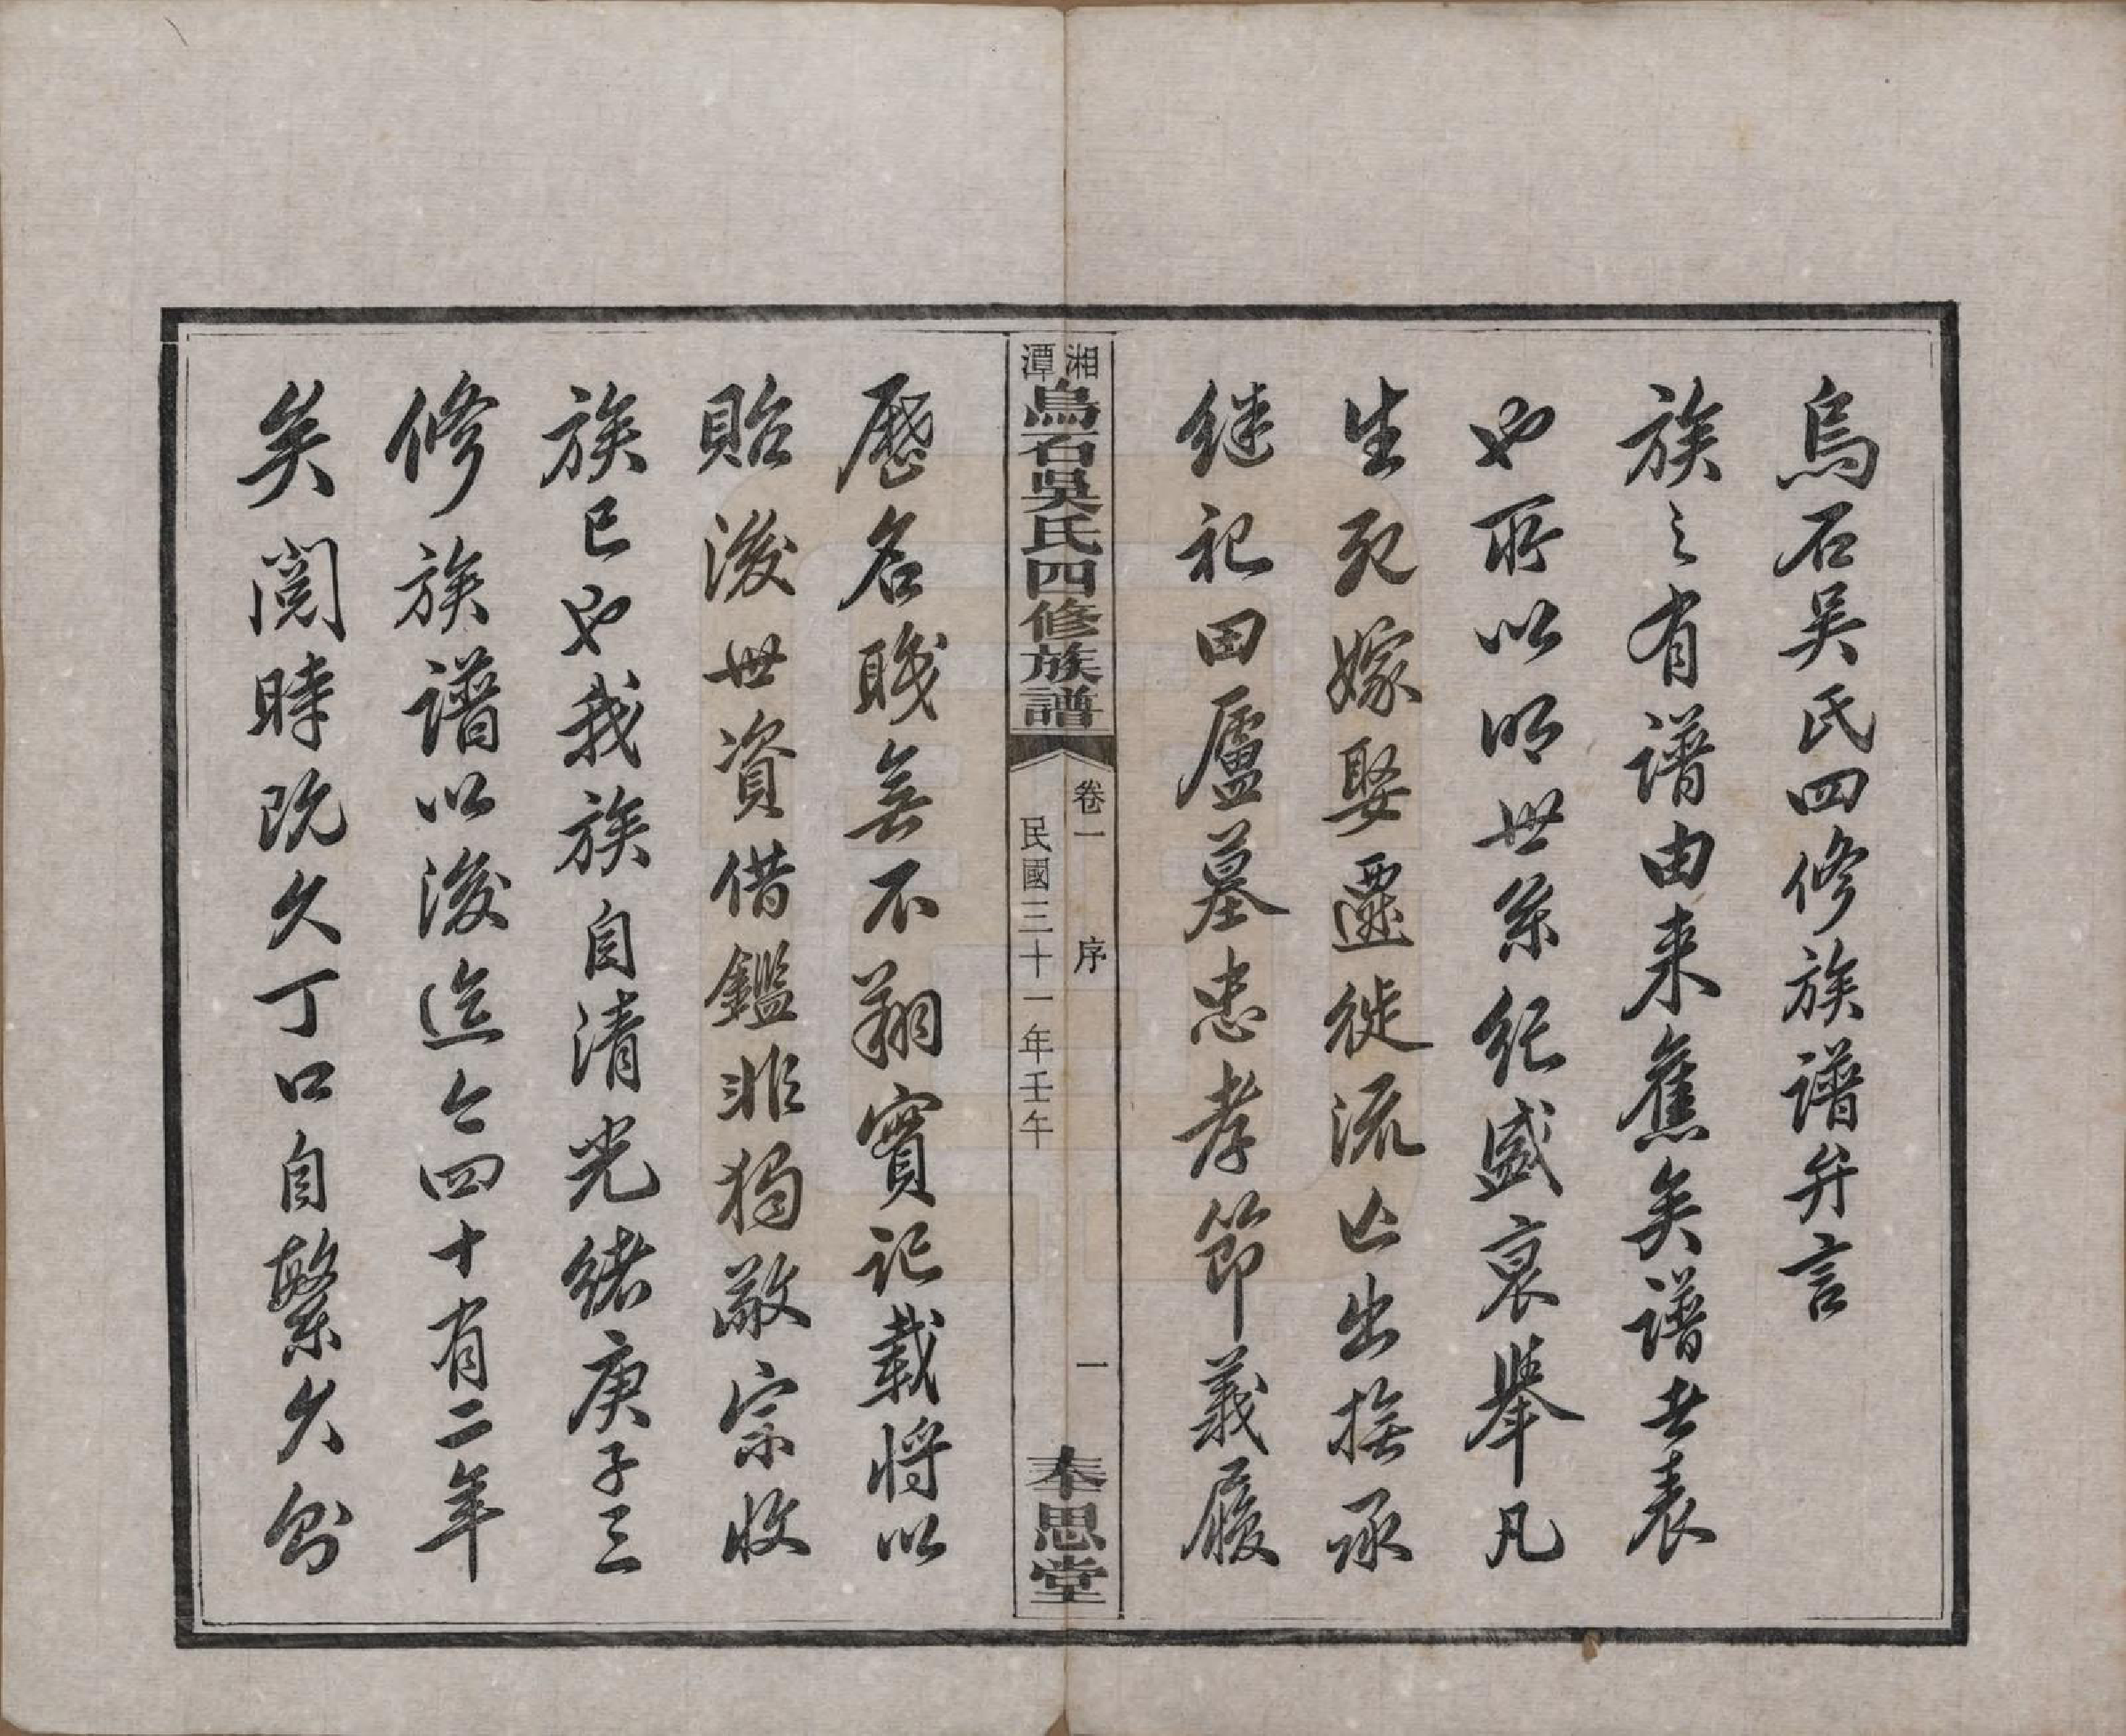 烏石吳氏四修族譜弁言
族之有譜由来舊矣譜者表
也所以明世系紀盛衰舉凡
生死嫁娶遷徙流亡出撫承
継祀田廬墓忠孝節義履
歷名職無不翔實記載將以
貽後世資借鑑非獨敬宗收
族已也我族自清光緒庚子三
修族譜以後迄今四十有二年
矣閱時既久丁口自繁久而
湘潭烏石吳氏四修族譜
卷一 序 一
民國三十一年壬午
奉思堂